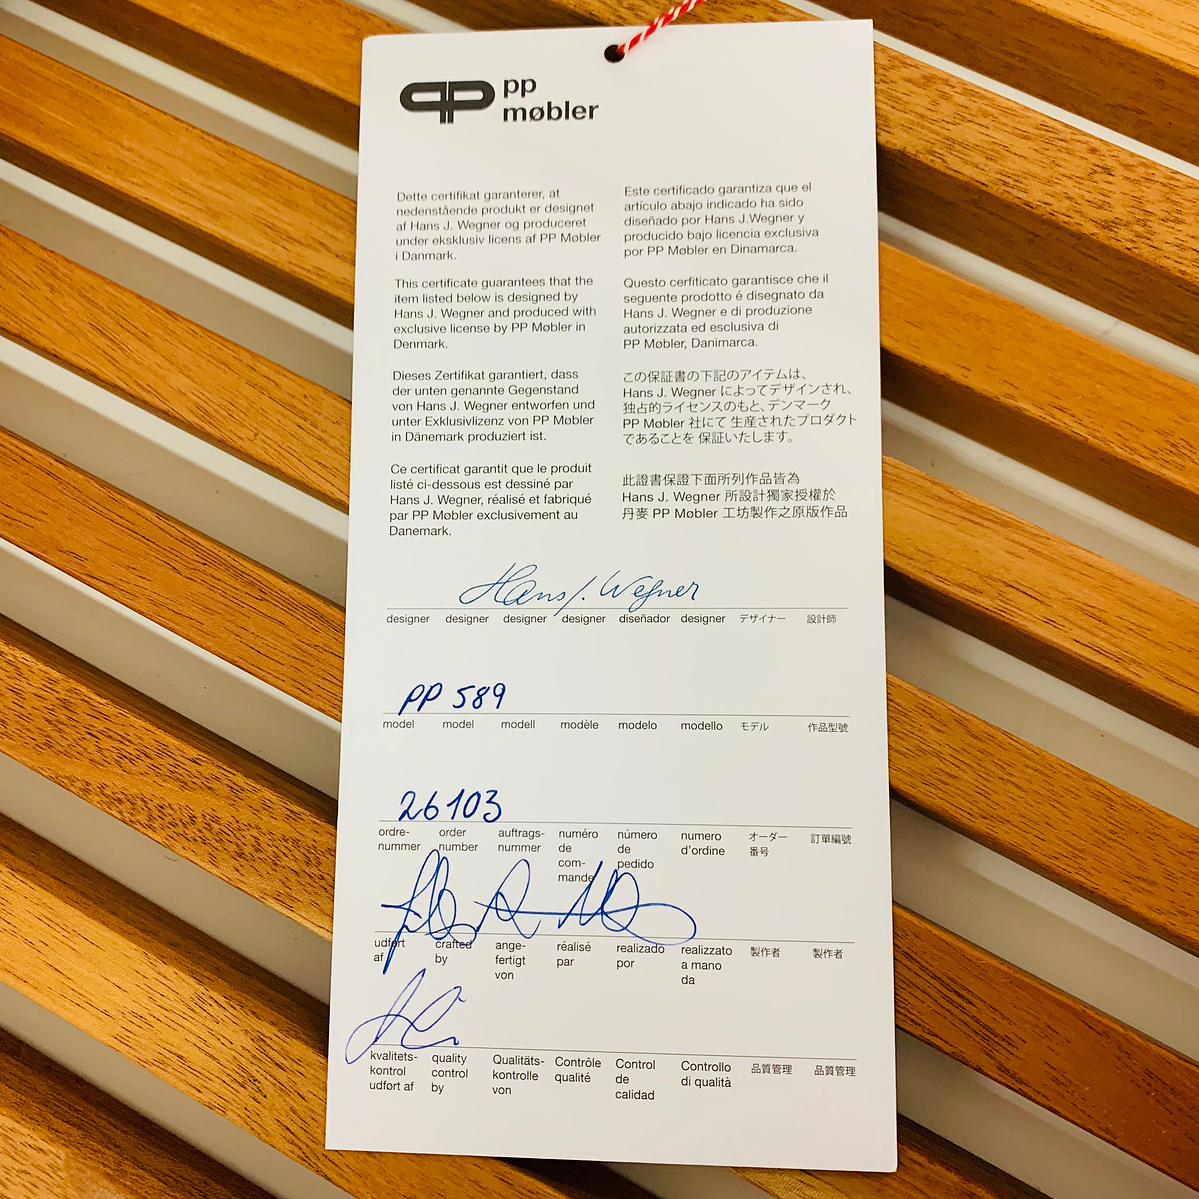 pp
møbler
Dette certifikat garanterer, at
nedenstående produkt er designet
af Hans J. Wegner og produceret
under eksklusiv licens af PP Møbler
i Danmark.
This certificate guarantees that the
item listed below is designed by
Hans J. Wegner and produced with
exclusive license by PP Møbler in
Denmark.
Dieses Zertifikat garantiert, dass
der unten genannte Gegenstand
von Hans J. Wegner entworfen und
unter Exklusivlizenz von PP Møbler
in Dänemark produziert ist.
Ce certificat garantit que le produit
listé ci-dessous est dessiné par
Hans J. Wegner, réalisé et fabriqué
par PP Møbler exclusivement au
Danemark.
Este certificado garantiza que el
artículo abajo indicado ha sido
diseñado por Hans J.Wegner y
producido bajo licencia exclusiva
por PP Møbler en Dinamarca.
Questo cerfiticato garantisce che il
seguente prodotto é disegnato da
Hans J. Wegner e di produzione
autorizzata ed esclusiva di
PP Møbler, Danimarca.
この保証書の下記のアイテムは、
Hans J. Wegner によってデザインされ、
独占的ライセンスのもと、デンマーク
PP Møbler 社にて 生産されたプロダクト
であることを 保証いたします。
此證書保證下面所列作品皆為
Hans J. Wegner 所設計獨家授權於
丹麥 PP Møbler 工坊製作之原版作品
Hans J. Wegner
designer designer designer designer diseñador designer デザイナー 設計師
PP 589
model model modell modèle modelo modello モデル 作品型號
26103
ordre-
nummer
order
number
auftrags-
nummer
numéro
de
com-
mande
número
de
pedido
numero
d'ordine
オーダー
番号
訂單編號
udført
af
crafted
by
ange-
fertigt
von
réalisé
par
realizado
por
realizzato
a mano
da
製作者
製作者
kvalitets-
kontrol
udført af
quality
control
by
Qualitäts-
kontrolle
von
Contrôle
qualité
Control
de
calidad
Controllo
di qualità
品質管理
品質管理